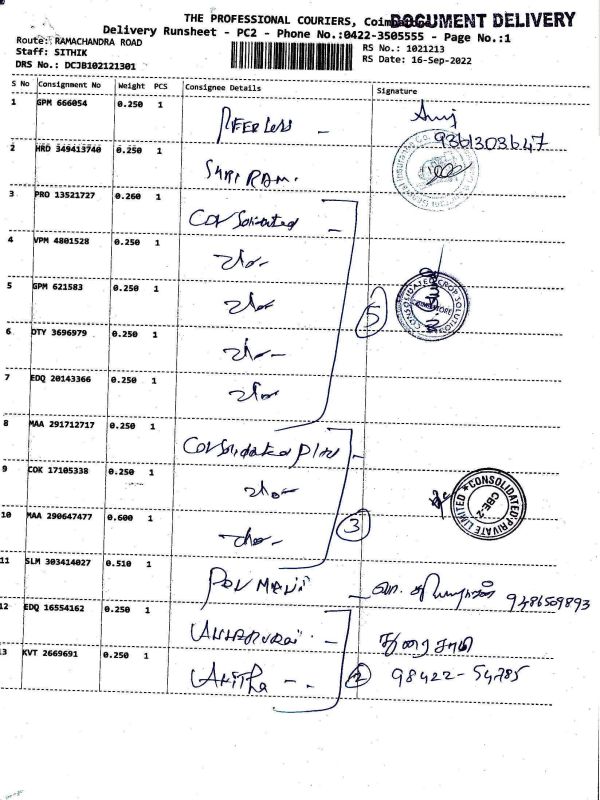 THE PROFESSIONAL COURIERS, Coimbatore
DOCUMENT DELIVERY
Delivery Runsheet - PC2 - Phone No.:0422-3505555 - Page No.:1
Route: RAMACHANDRA ROAD
RS No.: 1021213
Staff: SITHIK
RS Date: 16-Sep-2022
DRS No.: DCJB102121301
S No Consignment No Weight PCS Consignee Details Signature
1 GPM 666054 0.250 1 PEERLESS
9361303647
2 HRD 349413740 0.250 1 SHRIRAM.
General Insurance Co.
3 PRO 13521727 0.260 1 Consolidated
4 VPM 4801528 0.250 1
5 GPM 621583 0.250 1
5
CONSOLIDATED CROP SOLUTIONS
COIMBATORE
6 DTY 3696979 0.250 1
7 EDQ 20143366 0.250 1
8 MAA 291712717 0.250 1 Consolidated
9 COK 17105338 0.250 1
CONSOLIDATED PRIVATE LIMITED
CBE-2
10 MAA 290647477 0.600 1
3
11 SLM 303414027 0.510 1 PON MANI
9486509893
12 EDQ 16554162 0.250 1 துரைசாமி
13 KVT 2669691 0.250 1 2 98422-54785